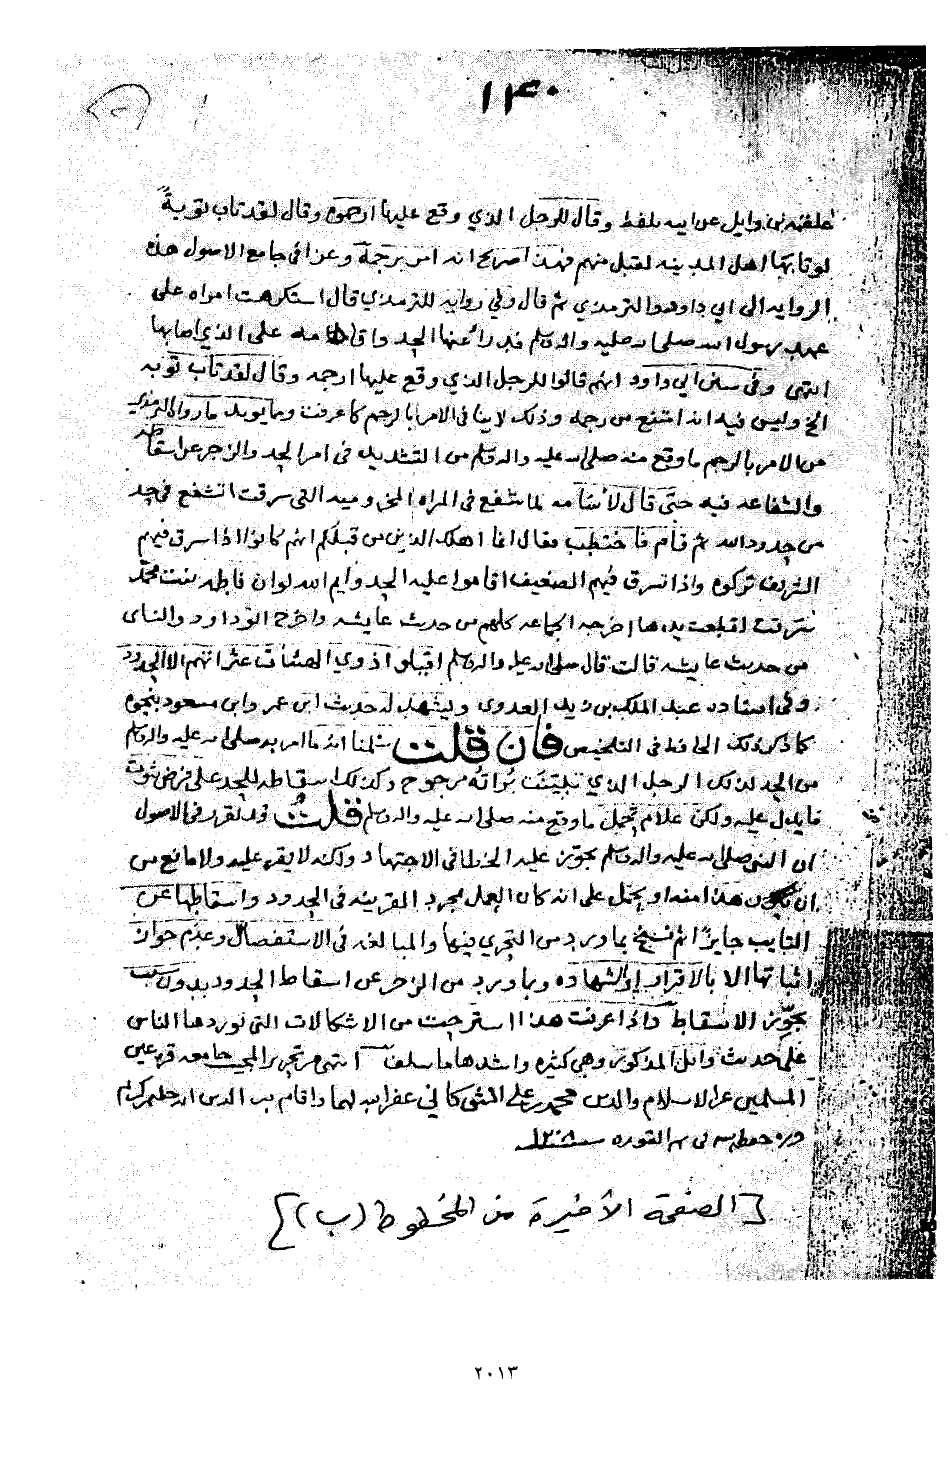 ١٤٠
علقمه بن وايل عن ابيه بلفظ وقال للرجل الذي وقع عليها ارجموه وقال لقد تاب توبةً
لو تابها اهل المدينه لقبل منهم فهذا صريح انه امر برجمه وعزا في جامع الاصول هذه
الروايه الى ابي داود والترمذي ثم قال وفي روايه للترمذي قال استكرهت امراه على
عهد رسول الله صلى الله عليه واله وسلم فدرا عنها الحد واقامه على الذي اصابها
انتهى وفي سنن ابي داود انهم قالوا للرجل الذي وقع عليها ارجمه وقال لقد تاب توبه
الخ وليس فيه انه امتنع من رجمه وذلك لا ينافى الامر بالرجم كما عرفت ومما يويد ما رواه الترمذي
من الامر بالرجم ما وقع منه صلى الله عليه واله وسلم من التشديد في امر الحد والزجر عن اسقاطه
والشفاعه فيه حتى قال لاسامه لما شفع في المراه المخزوميه التي سرقت اتشفع في حد
من حدود الله ثم قام فاختطب فقال انما اهلك الذين من قبلكم انهم كانوا اذا سرق فيهم
الشريف تركوه واذا سرق فيهم الضعيف اقاموا عليه الحد وايم الله لو ان فاطمه بنت محمد
سرقت لقطعت يدها اخرجه الجماعه كلهم من حديث عايشه واخرج ابو داود والنساى
من حديث عايشه قالت قال صلى الله عليه واله وسلم اقيلوا ذوي الهيئات عثراتهم الا الحدود
وفي اسناده عبد الملك بن زيد العدوي ويشهد له حديث ابن عمر وابن مسعود بنحوه
كما ذكر ذلك الحافظ في التلخيص فان قلت سلمنا انه ما امر به صلى الله عليه واله وسلم
من الحد لذلك الرجل الذي تبينت براته مرجوح وكذلك اسقاطه للحد على فرض ثبوت
ما يدل عليه ولكن علام يحمل ما وقع منه صلى الله عليه واله وسلم قلتُ قد تقرر في الاصول
ان النبي صلى الله عليه واله وسلم يجوز عليه الخطا في الاجتهاد ولكنه لا يقر عليه ولا مانع من
ان يكون هذا منه او يحمل على انه كان العمل بمجرد القرينه في الحدود واسقاطها عن
التايب جايزًا ثم نسخ بما ورد من التحري فيها والمبالغه في الاستفصال وعدم جواز
اثباتها الا بالاقرار او الشهاده وبما ورد من الزجر عن اسقاط الحدود بدون سبب
يجوّز الاسقاط فاذا عرفت هذا استرحت من الاشكالات التي توردها الناس
على حديث وايل المذكور وهي كثيره واشدها ما سلف انتهى تحرير المجيب جامعه قرة عين
المسلمين عز الاسلام والدين محمد بن علي الشوكاني غفر الله لهما واقام به الدين انه حليم كريم
١٢٠٨
[الصفحة الأخيرة من المخطوط (ب)]
٢٠١٣